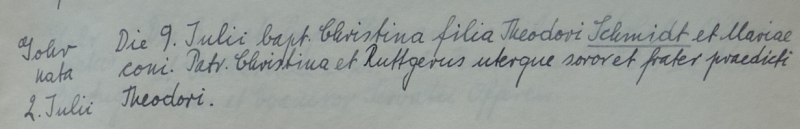 Die 9. Julii bapt. Christina filia Theodori Schmidt et Mariae
coni. Patr. Christina et Ruttgerus uterque soror et frater praedicti
Theodori.
nata
2. Julii